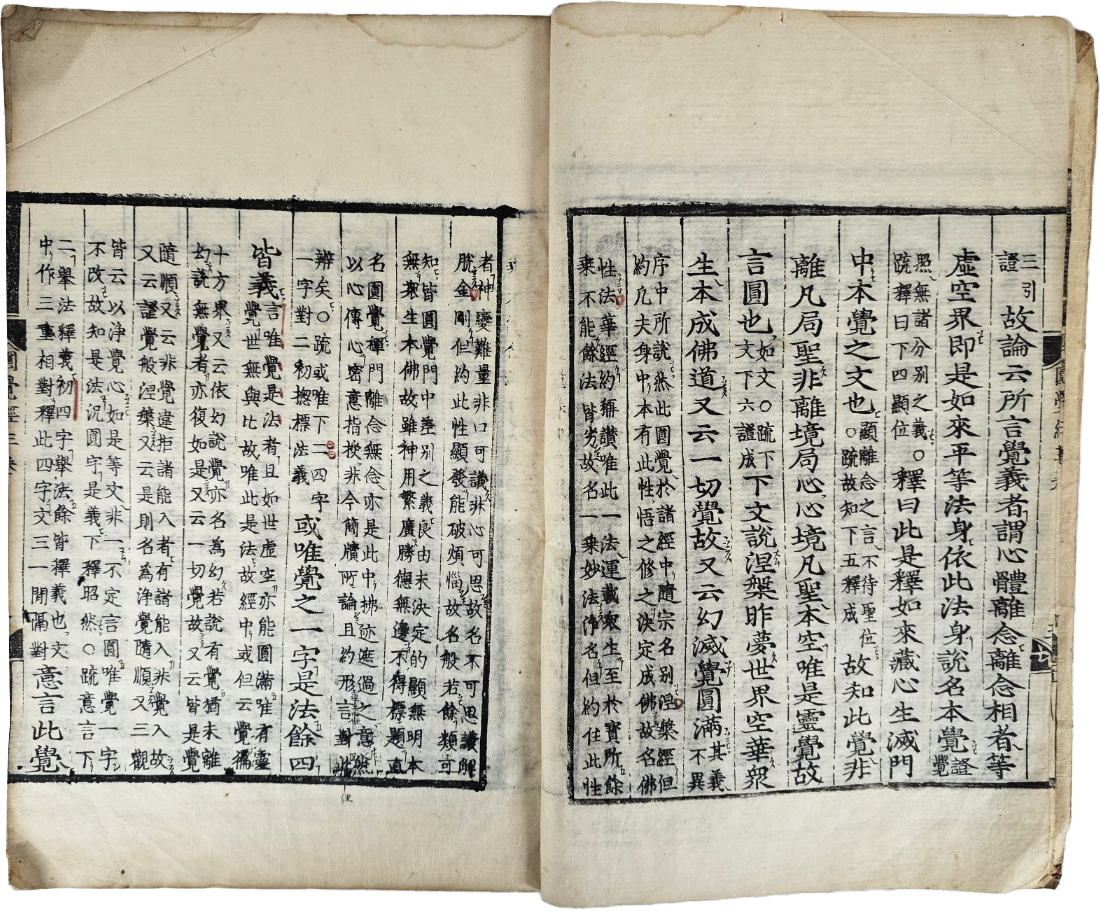 三引
證
故論云所言覺義者謂心體離念離念相者等
虛空界即是如來平等法身依此法身說名本覺證
覺
照無諸分別之義○
疏釋曰下四顯位
釋曰此是釋如來藏心生滅門
中本覺之文也
顯離念之言不待聖位
○疏故知下五釋成
故知此覺非
離凡局聖非離境局心心境凡聖本空唯是靈覺故
言圓也
如文○疏下
文下六證成
下文說涅槃昨夢世界空華衆
生本成佛道又云一切覺故又云幻滅覺圓滿
其義
不異
序中所說然此圓覺於諸經中隨宗名別涅槃經但
約凡夫身中本有此性悟之修之決定成佛故名佛
性法華經約稱讚唯此一法運載衆生至於寶所餘
乘不能餘法皆劣故名一乘妙法淨名但約住此性
者神變難量非口可議非心可思故名不可思議解
脫金剛但約此性顯發能破煩惱故名般若餘類可
知皆圓覺門中差別之義良由未決定的顯無明本
無衆生本佛故雖神用繁廣勝德無邊不得標題直
名圓覺禪門離念無念亦是此中拂迹遮過之意然
以心傳心密意指授非今簡牘所論且約形言對此
辨矣○疏或唯下二四字
一字對二初揔標法義
或唯覺之一字是法餘四
皆義
言唯覺是法者且如世虛空亦能圓滿唯有靈
覺世無與比故唯此是法故經中或但云覺徧
十方界又云依幻說覺亦名為幻若說有覺猶未離
幻說無覺者亦復如是又云一切覺故又云皆是覺
隨順又云非覺違拒諸能入者有諸能入非覺入故
又云證覺般涅槃又云是則名為淨覺隨順又三觀
皆云以淨覺心如是等文非一不定言圓唯覺一字
不改故知是法況圓字是義下釋昭然○疏意言下
二舉法釋義初四字舉法餘皆擇義也文
中作三重相對釋此四字文三一開隔對
意言此覺